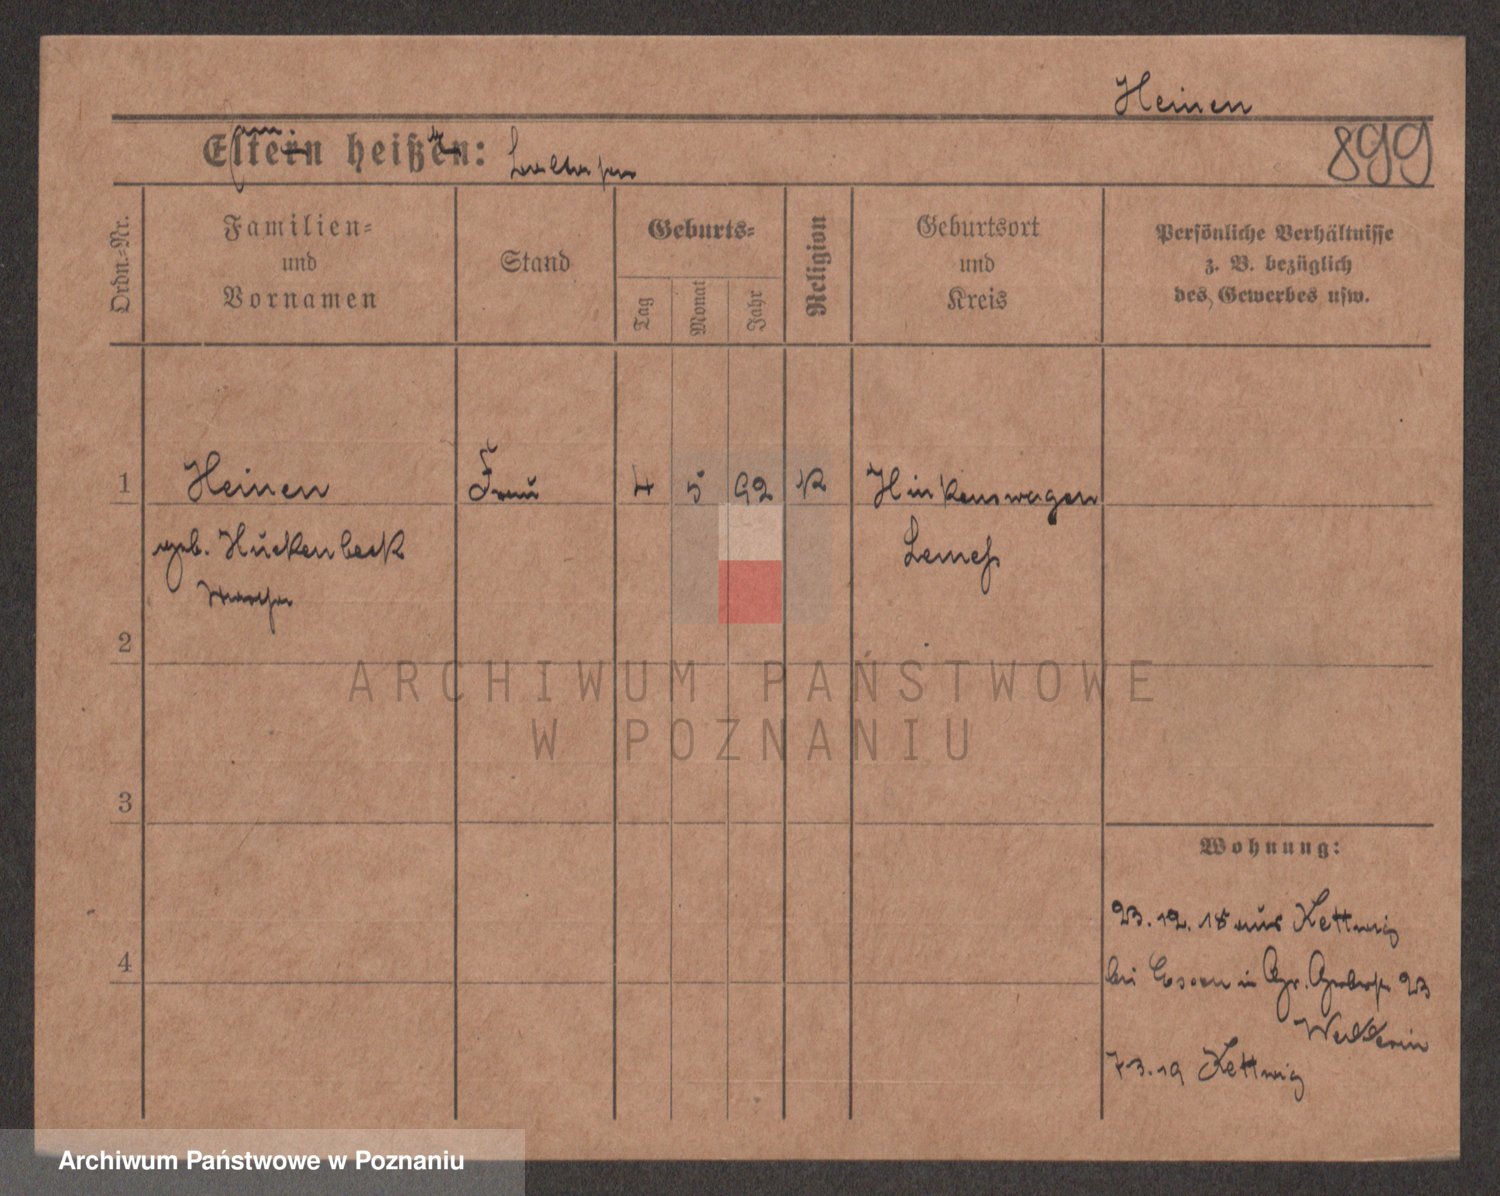 Heinen
Eltern heißen:
899
Ordn.-Nr.
Familien-
und
Vornamen
Stand
Geburts-
Tag
Monat
Jahr
Religion
Geburtsort
und
Kreis
Persönliche Verhältnisse
z. B. bezüglich
des Gewerbes usw.
1
Heinen
Frau
4
5
92
K
geb. Huckenbeck
Lennep
2
3
Wohnung:
23. 12. 18 aus Kettwig
bei Essen in 23
4
7 3. 19 Kettwig
ARCHIWUM PAŃSTWOWE
W POZNANIU
Archiwum Państwowe w Poznaniu